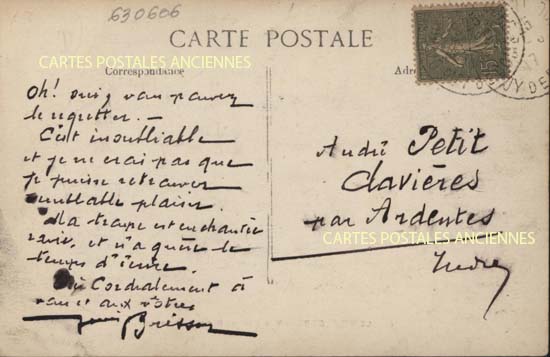 630606
CARTE POSTALE
CARTES POSTALES ANCIENNES
Correspondance
Oh! oui, vous pouvez
le regretter. —
C'est inoubliable
et je ne crois pas que
je puisse retrouver
semblable plaisir.
La troupe est enchantée
ravie, et n'a guère le
temps d'écrire.
Cordialement à
vous et aux vôtres
Brisson
André Petit
Clavières
par Ardentes
CARTES POSTALES ANCIENNES
Indre
15